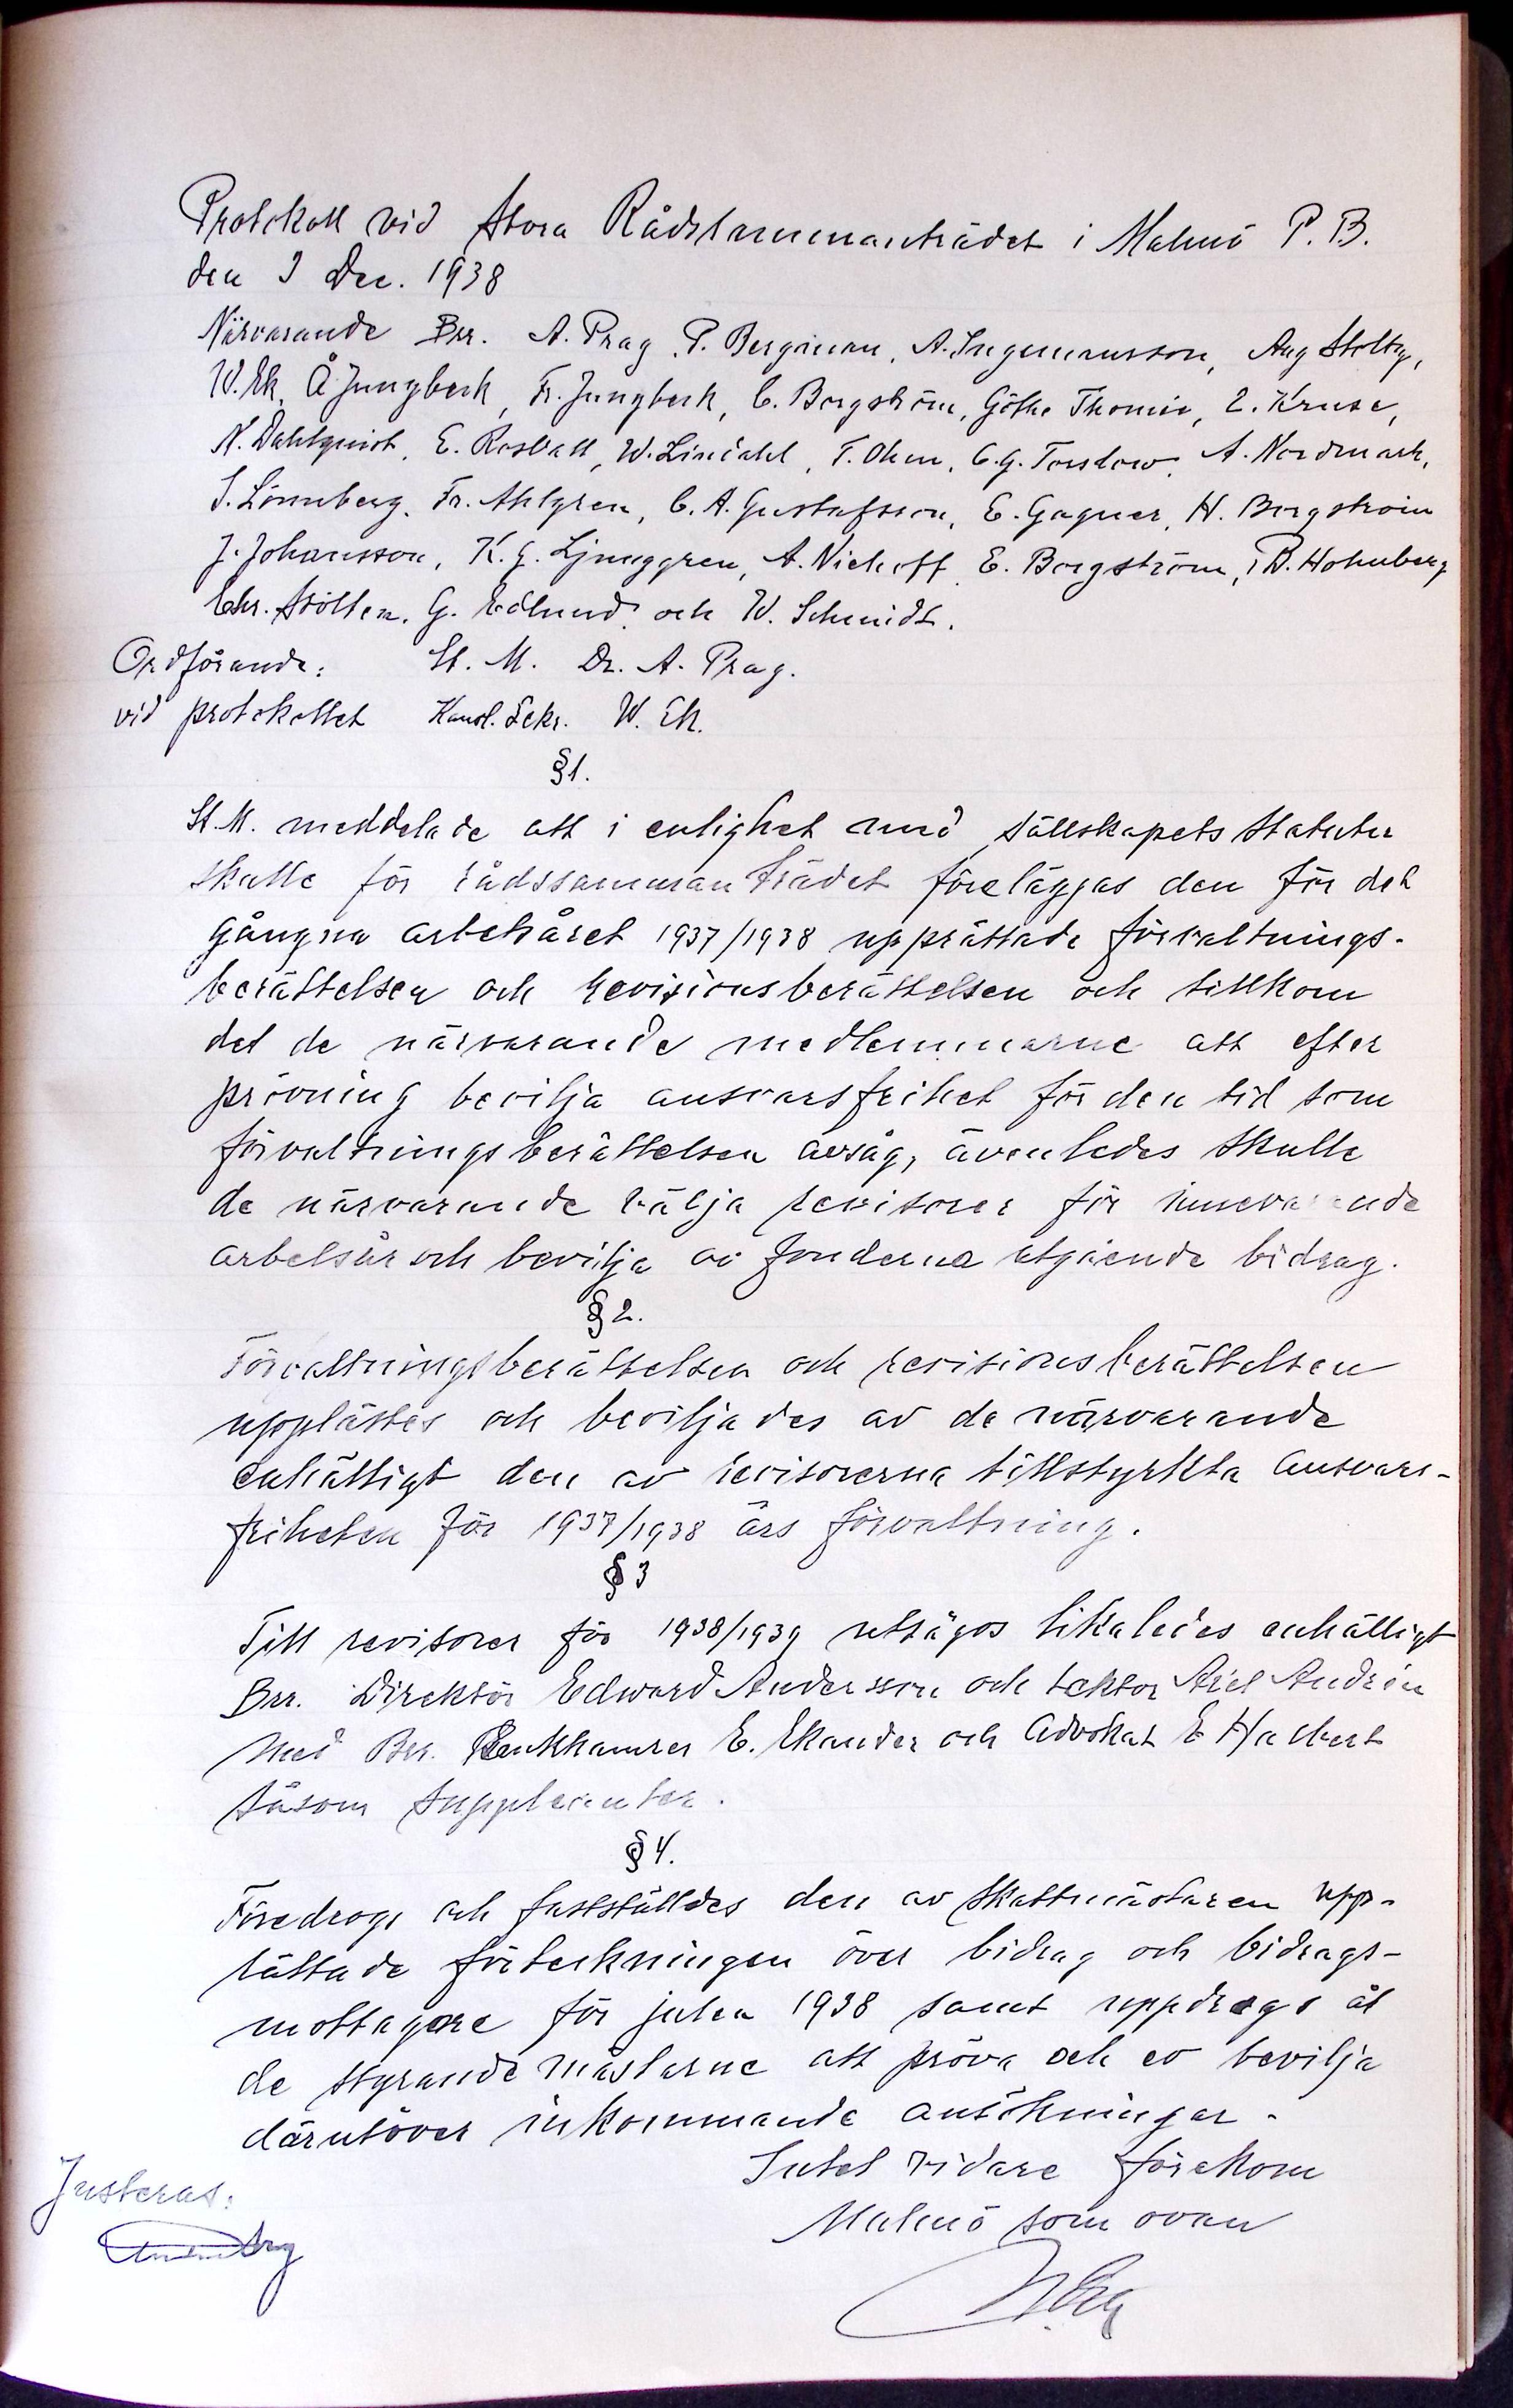 Protokoll vid Stora Rådssammanträdet i Malmö P. B.
den 2 Dec. 1938
Närvarande Brr. A. Prag, P. Bergman, A. Ingemansson, Aug Stoltz,
W. Ek, Å Jungbeck, Fr. Jungbeck, C. Borgström, Göthe Thomée, L. Kruse,
N. Dahlquist, E. Rosvall, W. Lindahl, T. Ohm, C. G. Torslow, A. Nordmark,
S. Lönnberg, Fr. Ahlgren, C. A. Gustafsson, E. Gagner, H. Borgström
J. Johansson, K. G. Ljunggren, A. Niehoff, E. Borgström, B. Holmberg
Chr. Stölten, G. Edlund och W. Schmidt.
Ordförande: St. M. Dr. A. Prag.
vid protokollet Kansl. Sekr. W. Ek.
§1.
St. M. meddelade att i enlighet med sällskapets statuter
skulle för rådssammanträdet föreläggas den för det
gångna arbetsåret 1937/1938 upprättade förvaltnings-
berättelsen och revisionsberättelsen och tillkom
det de närvarande medlemmarne att efter
prövning bevilja ansvarsfrihet för den tid som
förvaltningsberättelsen avsåg, ävenledes skulle
de närvarande välja revisorer för innevarande
arbetsår och bevilja av fonderna utgående bidrag.
§2.
Förvaltningsberättelsen och revisionsberättelsen
upplästes och beviljades av de närvarande
enhälligt den av revisorerna tillstyrkta ansvars-
friheten för 1937/1938 års förvaltning.
§3
Till revisorer för 1938/1939 utsågos likaledes enhälligt
Brr. Direktör Edward Andersson och lektor Axel Andrén
med Brr. Bankkamrer E. Ekander och Advokat E Hackert
såsom suppleanter.
§4.
Föredrogs och fastställdes den av skattmästaren upp-
rättade förteckningen över bidrag och bidrags-
mottagare för julen 1938 samt uppdrogs åt
de styrande mästarne att pröva och ev bevilja
därutöver inkommande ansökningar.
Intet vidare förekom
Malmö som ovan
Justeras:
W. Ek